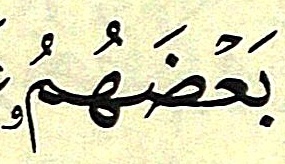 بَعْضَهُمُ